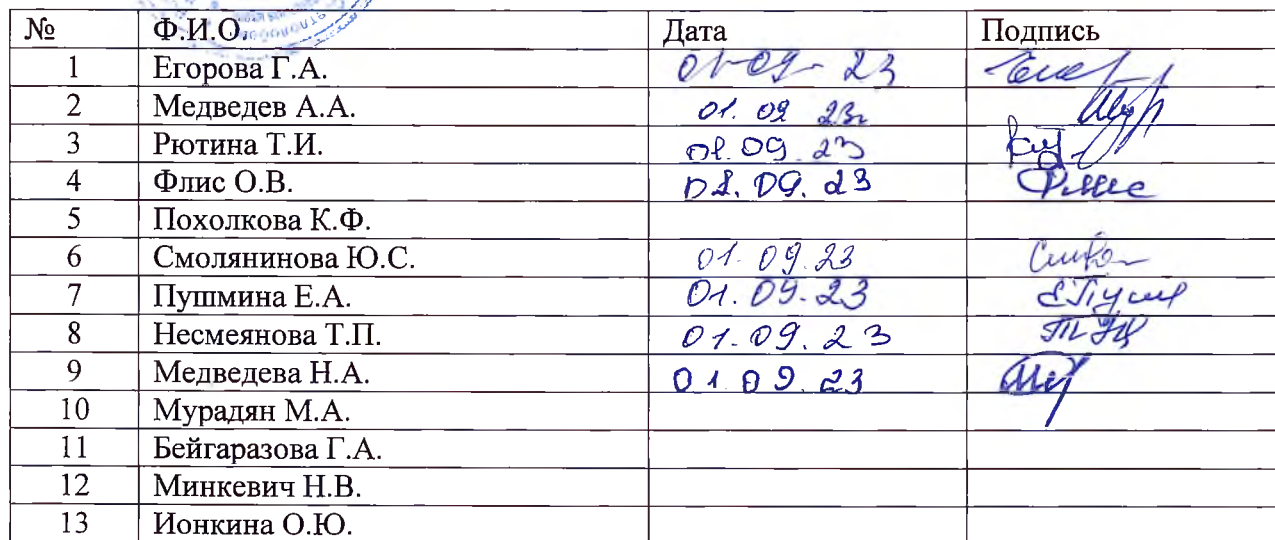 № Ф.И.О. Дата Подпись
1 Егорова Г.А. 01-09-23
2 Медведев А.А. 01.09 23г
3 Рютина Т.И. 01.09.23
4 Флис О.В. 01.09.23 Флис
5 Похолкова К.Ф.
6 Смолянинова Ю.С. 01.09.23
7 Пушмина Е.А. 01.09.23 ЕПушм
8 Несмеянова Т.П. 01.09.23
9 Медведева Н.А. 01 09.23
10 Мурадян М.А.
11 Бейгаразова Г.А.
12 Минкевич Н.В.
13 Ионкина О.Ю.